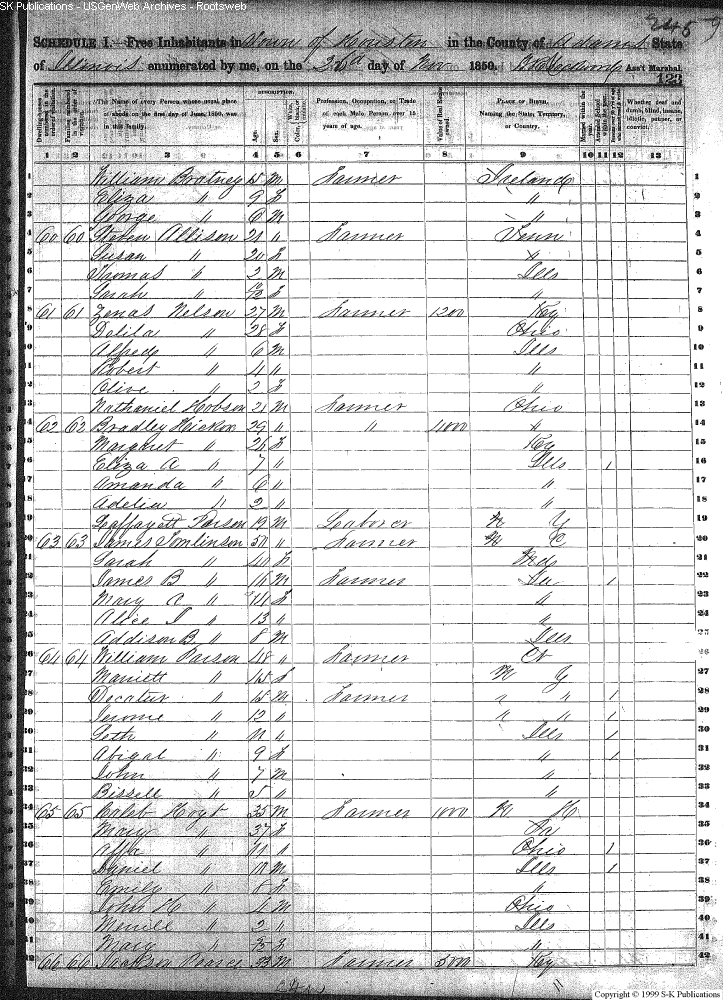 SK Publications - USGenWeb Archives - Rootsweb
SCHEDULE I.—Free Inhabitants in Town of Houston in the County of Adams State
of Illinois enumerated by me, on the day of Nov 1850. Ass't Marshal.
123
DESCRIPTION.
Dwelling-houses numbered in the order of visitation. Families numbered in the order of visitation. The Name of every Person whose usual place of abode on the first day of June, 1850, was in this family. Age. Sex. Color Profession, Occupation, or Trade of each Male Person over 15 years of age. Value of Real Estate owned. PLACE OF BIRTH, Naming the State, Territory, or Country. Married within the year. Attended School within the year. Whether deaf and dumb, blind, insane, idiotic, pauper, or convict.
1 2 3 4 5 6 7 8 9 10 11 12 13
1 William Bratney 15 M Farmer Ireland 1
2 Eliza " 9 F " 2
3 George " 6 M " 3
4 60 60 Allison 21 " Farmer Tenn 4
5 Susan " 20 F " 5
6 Thomas " 2 M Ills 6
7 Sarah " F " 7
8 61 61 Zenas Nelson 27 M Farmer 1200 Key 8
9 Delila " 28 F Ohio 9
10 Alfred " 6 M Ills 10
11 Robert " 4 " " 11
12 Olive " 2 F " 12
13 Nathaniel Hobson 21 M Farmer Ohio 13
14 62 62 Bradley Hickox 29 " " 4000 " 14
15 Margaret " 26 F Key 15
16 Eliza A " 7 " Ills 1 16
17 Amanda " 6 " " 17
18 Adelia " 2 " " 18
19 Laffayett Parson 19 M Laborer N Y 19
20 63 63 James Tomlinson 50 " Farmer N C 20
21 Sarah " 40 F Md 21
22 James B " 16 M Farmer 1 22
23 Mary " 14 F " 23
24 Alice " 13 " " 24
25 Addison B " 8 M Ills
26 64 64 William Parson 48 " Farmer Ct 26
27 " 45 F N Y 27
28 Decatur " 15 M Farmer " " 1 28
29 Jerome " 12 " " " 1 29
30 Seth " 11 " Ills 1 30
31 Abigal " 9 F " 1 31
32 John " 7 M " 32
33 Bissell " 5 " " 33
34 65 65 Caleb Hoyt 35 M Farmer 1000 N H 34
35 Mary " 37 F Pa 35
36 " 11 " Ohio 1 36
37 Daniel " 10 M Ills 1 37
38 Emily " 8 F " 38
39 John H " 4 M Ohio 39
40 Merrill " 2 " Ills 40
41 Mary " F " 41
42 66 66 Jackson Pearce 33 M Farmer 500 Key 42
Copyright © 1999 S-K Publications